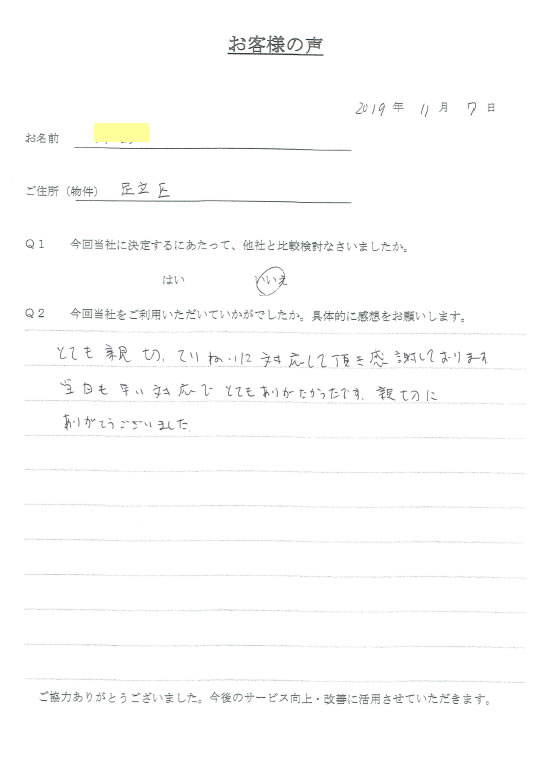 お客様の声
2019年 11月 7日
お名前
ご住所（物件） 足立区
Q1 今回当社に決定するにあたって、他社と比較検討なさいましたか。
はい いいえ
Q2 今回当社をご利用いただいていかがでしたか。具体的に感想をお願いします。
とても親切、ていねいに対応して頂き感謝しております
当日も早い対応でとてもありがたかったです。親切に
ありがとうございました
ご協力ありがとうございました。今後のサービス向上・改善に活用させていただきます。